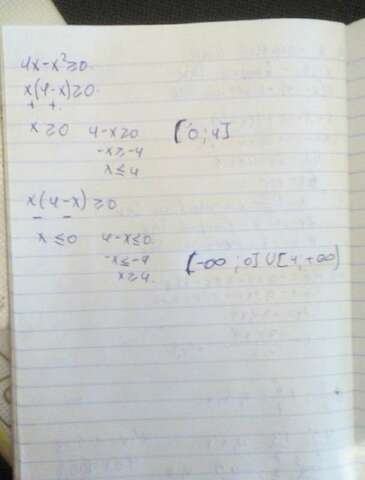 4x-x²≥0.
x(4-x)≥0
+ +
x≥0 4-x≥0 [0;4]
-x≥-4
x≤4
x(4-x)≥0
- -
x≤0 4-x≤0.
-x≤-4
x≥4. [-∞;0]∪[4;+∞)